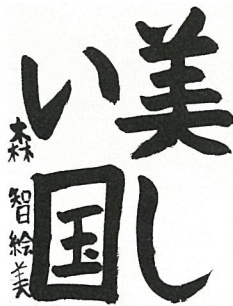 美し
い国
森 智絵美